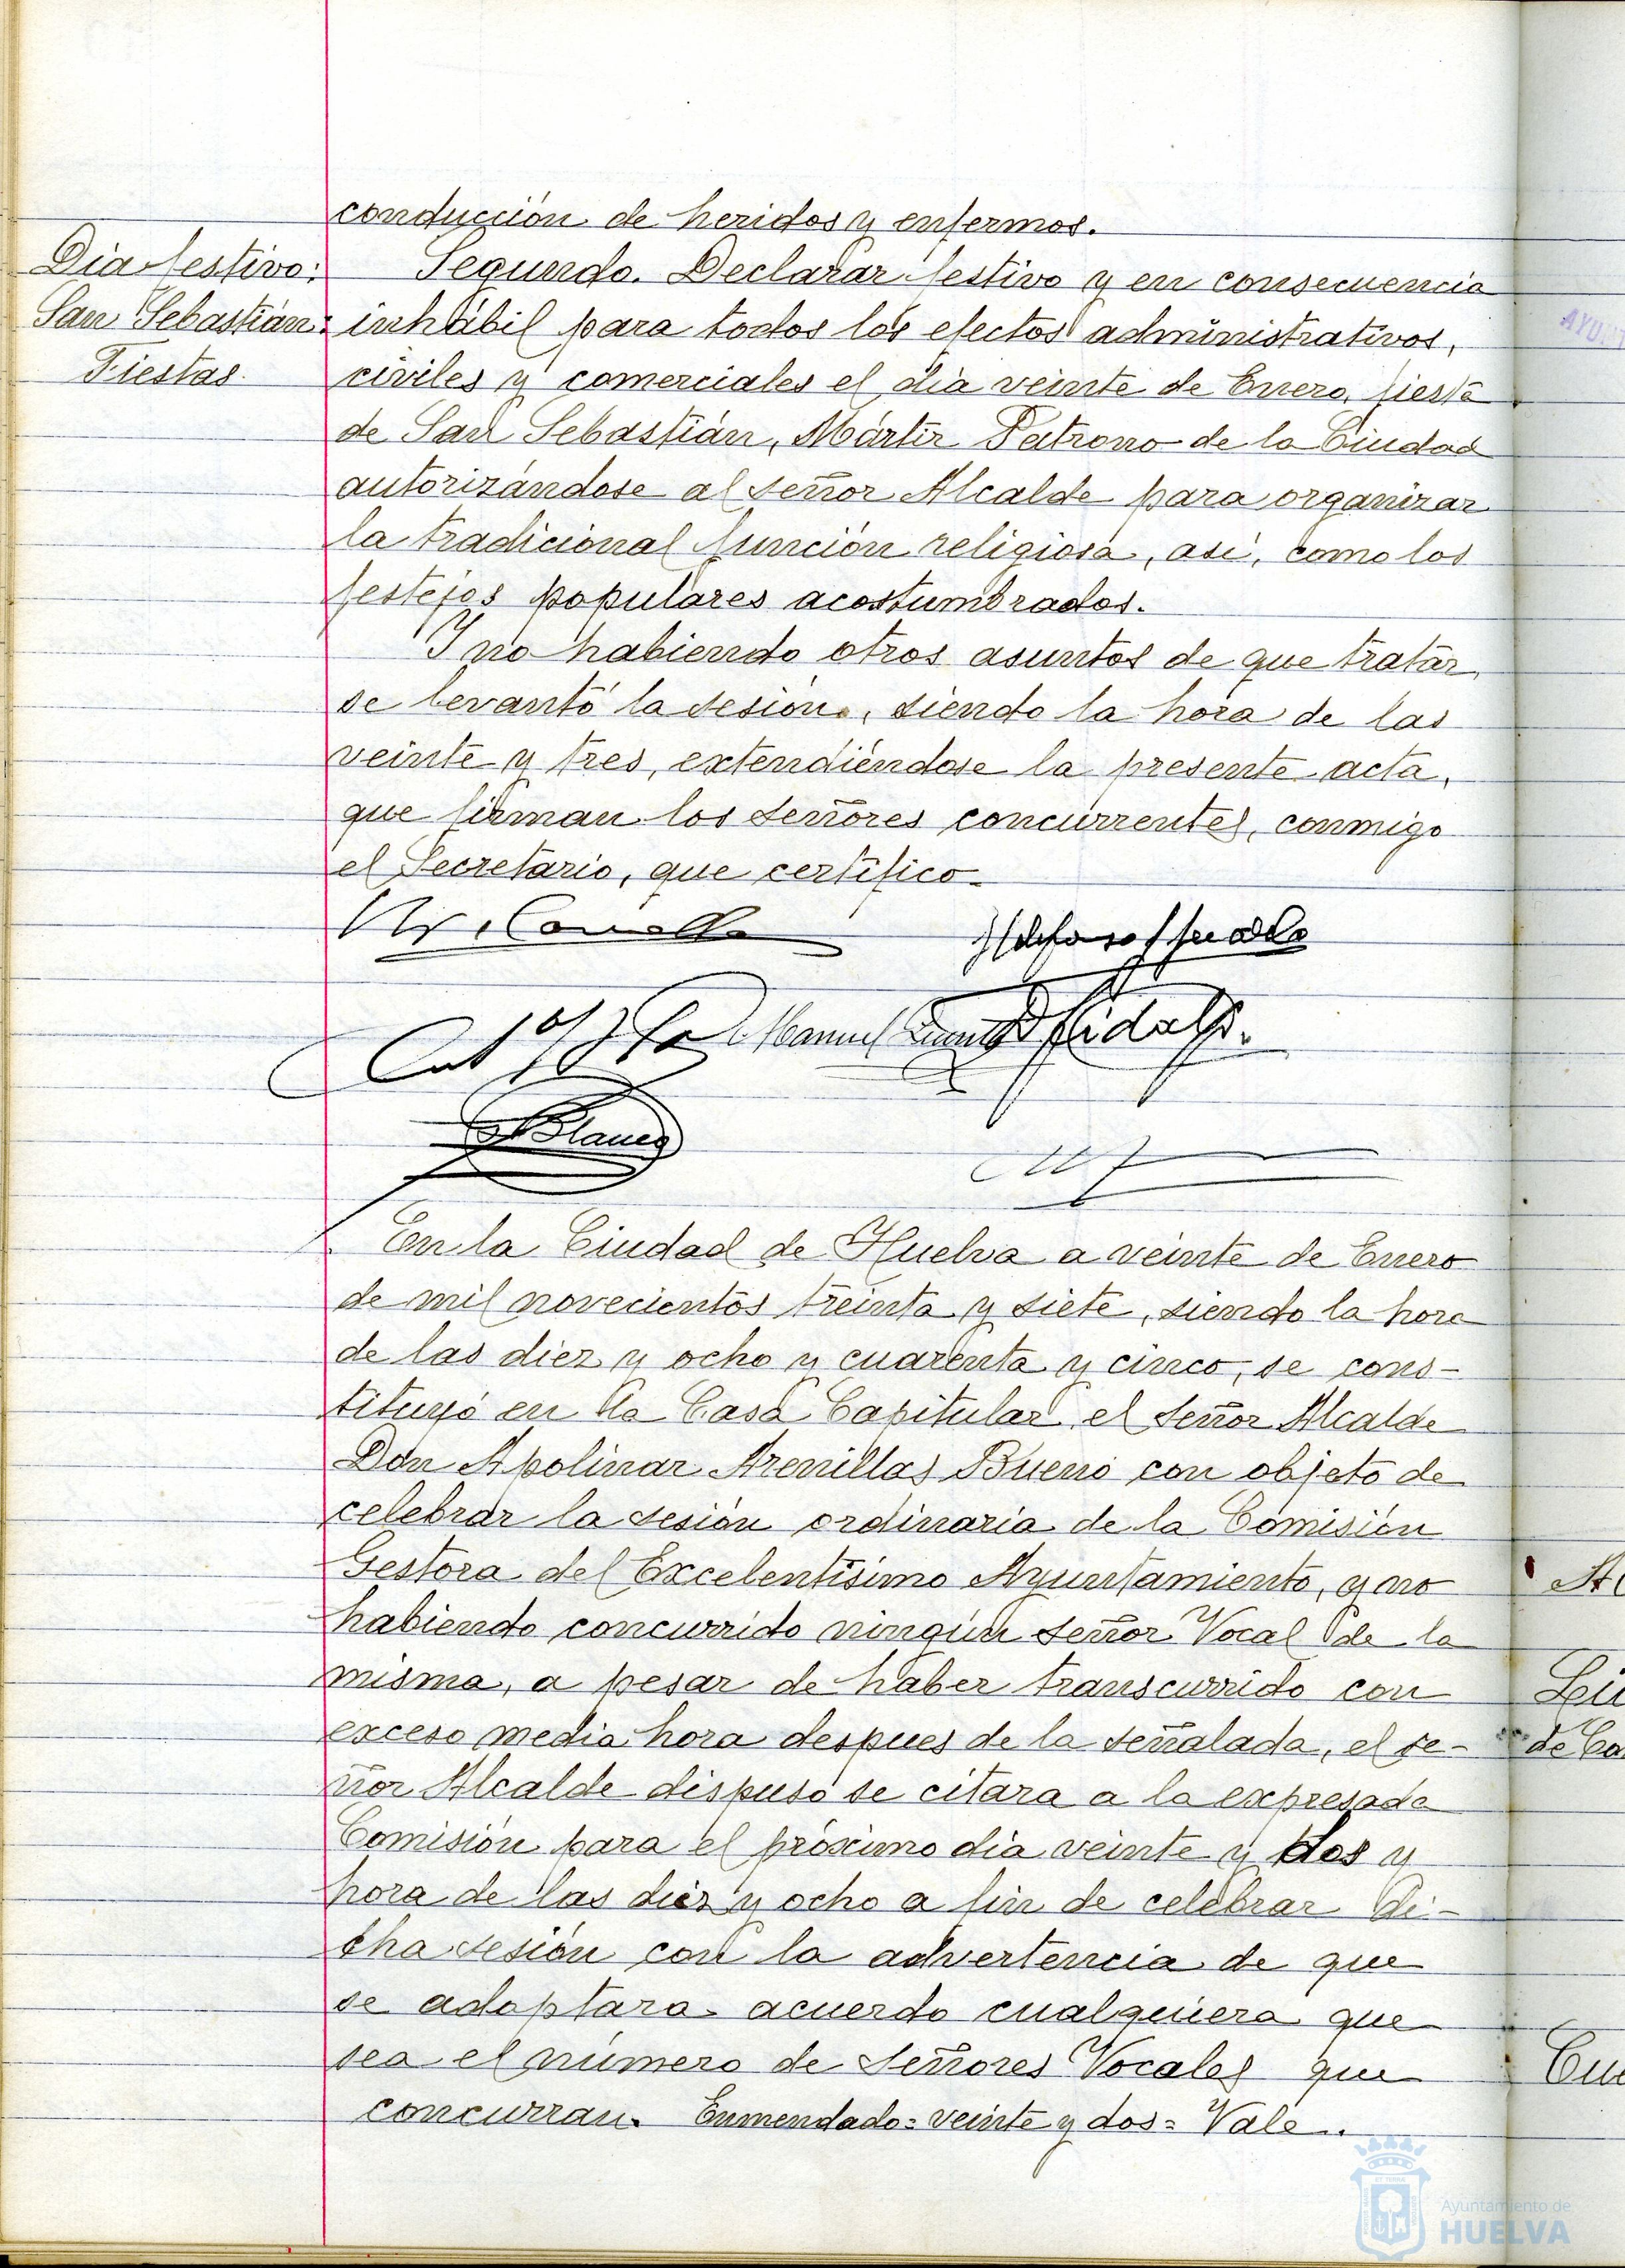 conducción de heridos y enfermos.
Dia festivo:
San Sebastián:
Fiestas.
Segundo. Declarar festivo y en consecuencia
inhábil para todos los efectos administrativos,
civiles y comerciales el dia veinte de Enero, fiesta
de San Sebastián, Mártir Patrono de la Ciudad
autorizándose al señor Alcalde para organizar
la tradicional función religiosa, asi, como los
festejos populares acostumbrados.
Y no habiendo otros asuntos de que tratar,
se levantó la sesión, siendo la hora de las
veinte y tres, extendiéndose la presente acta,
que firman los señores concurrentes, conmigo
el Secretario, que certifico.
Manuel
Hidalgo.
Blanco
En la Ciudad de Huelva a veinte de Enero
de mil novecientos treinta y siete, siendo la hora
de las diez y ocho y cuarenta y cinco, se cons-
tituyó en la Casa Capitular, el señor Alcalde
Don Apolinar Arenillas Bueno con objeto de
celebrar la sesión ordinaria de la Comisión
Gestora del Excelentísimo Ayuntamiento, y no
habiendo concurrido ningún señor Vocal de la
misma, a pesar de haber transcurrido con
exceso media hora despues de la señalada, el se-
ñor Alcalde dispuso se citara a la expresada
Comisión para el próximo dia veinte y dos y
hora de las diez y ocho a fin de celebrar di-
cha sesión con la advertencia de que
se adoptara acuerdo cualquiera que
sea el número de Señores Vocales que
concurran. Enmendado=veinte y dos=Vale.
de Ca
Ayuntamiento de
HUELVA